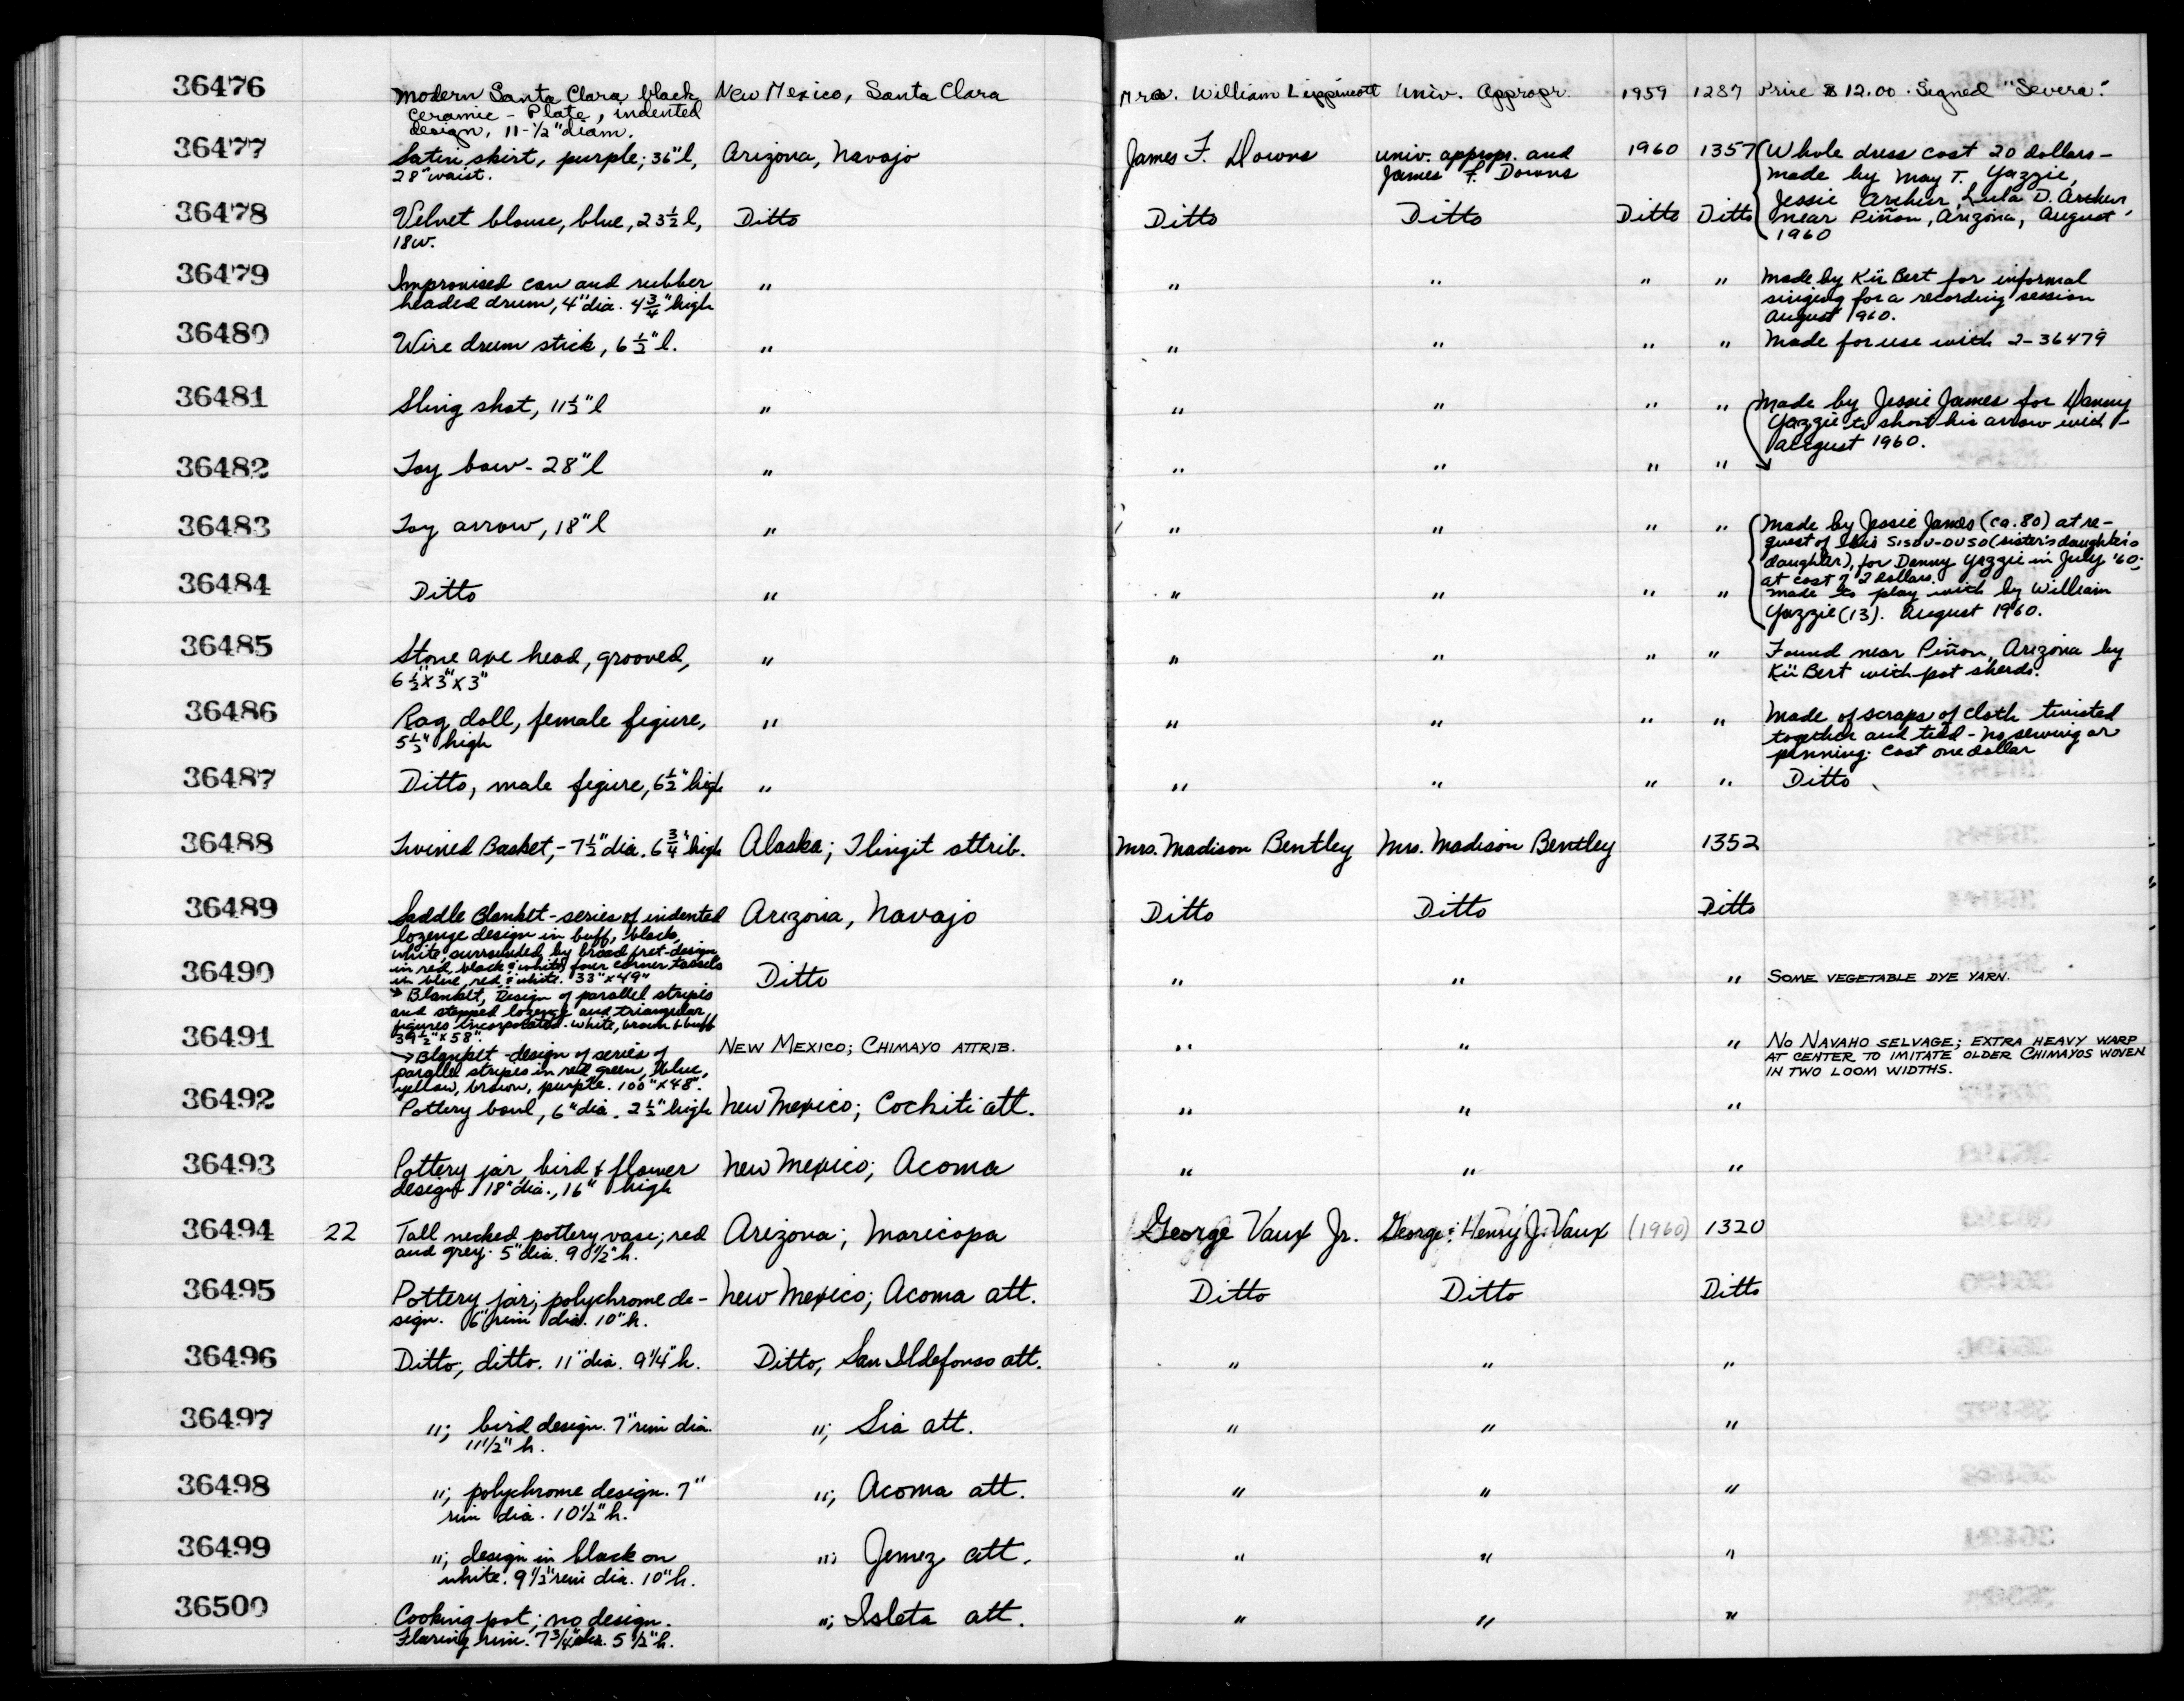 36476
Modern Santa Clara black
ceramic - Plate, indented
design, 11-1/2" diam.
New Mexico, Santa Clara
Mrs. William Lippincott
Univ. Appropr.
1959
1287
Price $12.00. Signed "Severa".
36477
Satin skirt, purple; 36" l,
28" waist.
Arizona, Navajo
James F. Downs
univ. appropr. and
James F. Downs
1960
1357
Whole dress cost 20 dollars-
made by May T. Yazzie,
Jessie Archer, Lula D. Archer,
near Piñon, Arizona, August
1960
36478
Velvet blouse, blue, 23½ l,
18w.
Ditto
Ditto
Ditto
Ditto
Ditto
36479
Improvised can and rubber
headed drum, 4" dia. 4¾" high
"
"
"
"
"
Made by Kii Bert for informal
singing for a recording session
August 1960.
36480
Wire drum stick, 6½" l.
"
"
"
"
"
Made for use with 2-36479
36481
Sling shot, 11½" l
"
"
"
"
"
Made by Jessie James for Danny
Yazzie to shoot his arrow with -
August 1960.
36482
Toy bow - 28" l
"
"
"
"
"
36483
Toy arrow, 18" l
"
"
"
"
"
Made by Jessie James (ca. 80) at re-
quest of his SISDU-DUSD (sister's daughter's
daughter), for Danny Yazzie in July '60;
at cost of 2 dollars.
36484
Ditto
"
"
"
"
"
made to play with by William
Yazzie (13). August 1960.
36485
Stone axe head, grooved,
6½" x 3" x 3"
"
"
"
"
"
Found near Piñon, Arizona by
Kii Bert with pot sherds.
36486
Rag doll, female figure,
5½" high
"
"
"
"
"
Made of scraps of cloth twisted
together and tied - no sewing or
pinning. Cost one dollar
36487
Ditto, male figure, 6½" high
"
"
"
"
"
Ditto
36488
Twined Basket, - 7½" dia. 6¾" high
Alaska; Tlingit attrib.
Mrs. Madison Bentley
Mrs. Madison Bentley
1352
36489
Saddle Blanket - series of indented
lozenge design in buff, black,
white, surrounded by broad fret-design
in red, black & white, four corner tassels
in blue, red & white. 33" x 49"
Arizona, Navajo
Ditto
Ditto
Ditto
36490
→ Blanket, Design of parallel stripes
and stepped lozenge and triangular
figures incorporated. White, brown & buff
39½" x 58".
Ditto
"
"
"
SOME VEGETABLE DYE YARN.
36491
→ Blanket - design of series of
parallel stripes in red, green, blue,
yellow, brown, purple. 100" x 48".
NEW MEXICO; CHIMAYO ATTRIB.
"
"
"
NO NAVAHO SELVAGE; EXTRA HEAVY WARP
AT CENTER TO IMITATE OLDER CHIMAYOS WOVEN
IN TWO LOOM WIDTHS.
36492
Pottery bowl, 6" dia. 2½" high
New Mexico; Cochiti att.
"
"
"
36493
Pottery jar, bird & flower
design. 18" dia., 16" high
New Mexico; Acoma
"
"
"
36494
22
Tall necked pottery vase; red
and grey. 5" dia. 9 1/2" h.
Arizona; Maricopa
George Vaux Jr.
George & Henry J. Vaux
(1960)
1320
36495
Pottery jar; polychrome de-
sign. 6" rim dia. 10" h.
New Mexico; Acoma att.
Ditto
Ditto
Ditto
36496
Ditto, ditto. 11" dia. 9 1/4" h.
Ditto; San Ildefonso att.
"
"
"
36497
"; bird design. 7" rim dia.
11 1/2" h.
"; Sia att.
"
"
"
36498
"; polychrome design. 7"
rim dia. 10 1/2" h.
"; Acoma att.
"
"
"
36499
"; design in black on
white. 9 1/2" rim dia. 10" h.
"; Jemez att.
"
"
"
36500
Cooking pot; no design.
Flaring rim. 7 3/4" dia. 5 1/2" h.
"; Isleta att.
"
"
"